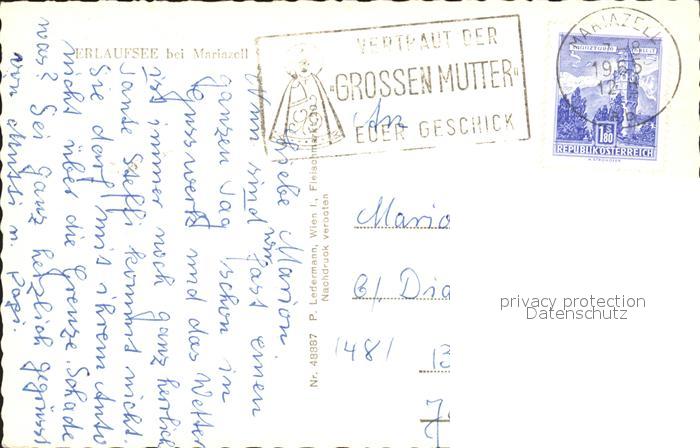 ERLAUFSEE bei Mariazell
Liebe Marion.
Nun sind wir fast einen
ganzen Tag schon in
Gusswerk und das Wetter
ist immer noch ganz herrlich
Tante Steffi kommt nicht
Sie darf mit ihrem Auto
nicht über die Grenze. Schade
was? Sei ganz herzlich gegrüsst
von Mutti u. Papi.
Nr. 48887 P. Ledermann, Wien I., Fleischmarkt
Nachdruck verboten
VERTRAUT DER
"GROSSEN MUTTER"
EUER GESCHICK
MARIAZELL
1.80
REPUBLIK ÖSTERREICH
An
Mario
b/ Dia
1481 13
privacy protection
Datenschutz